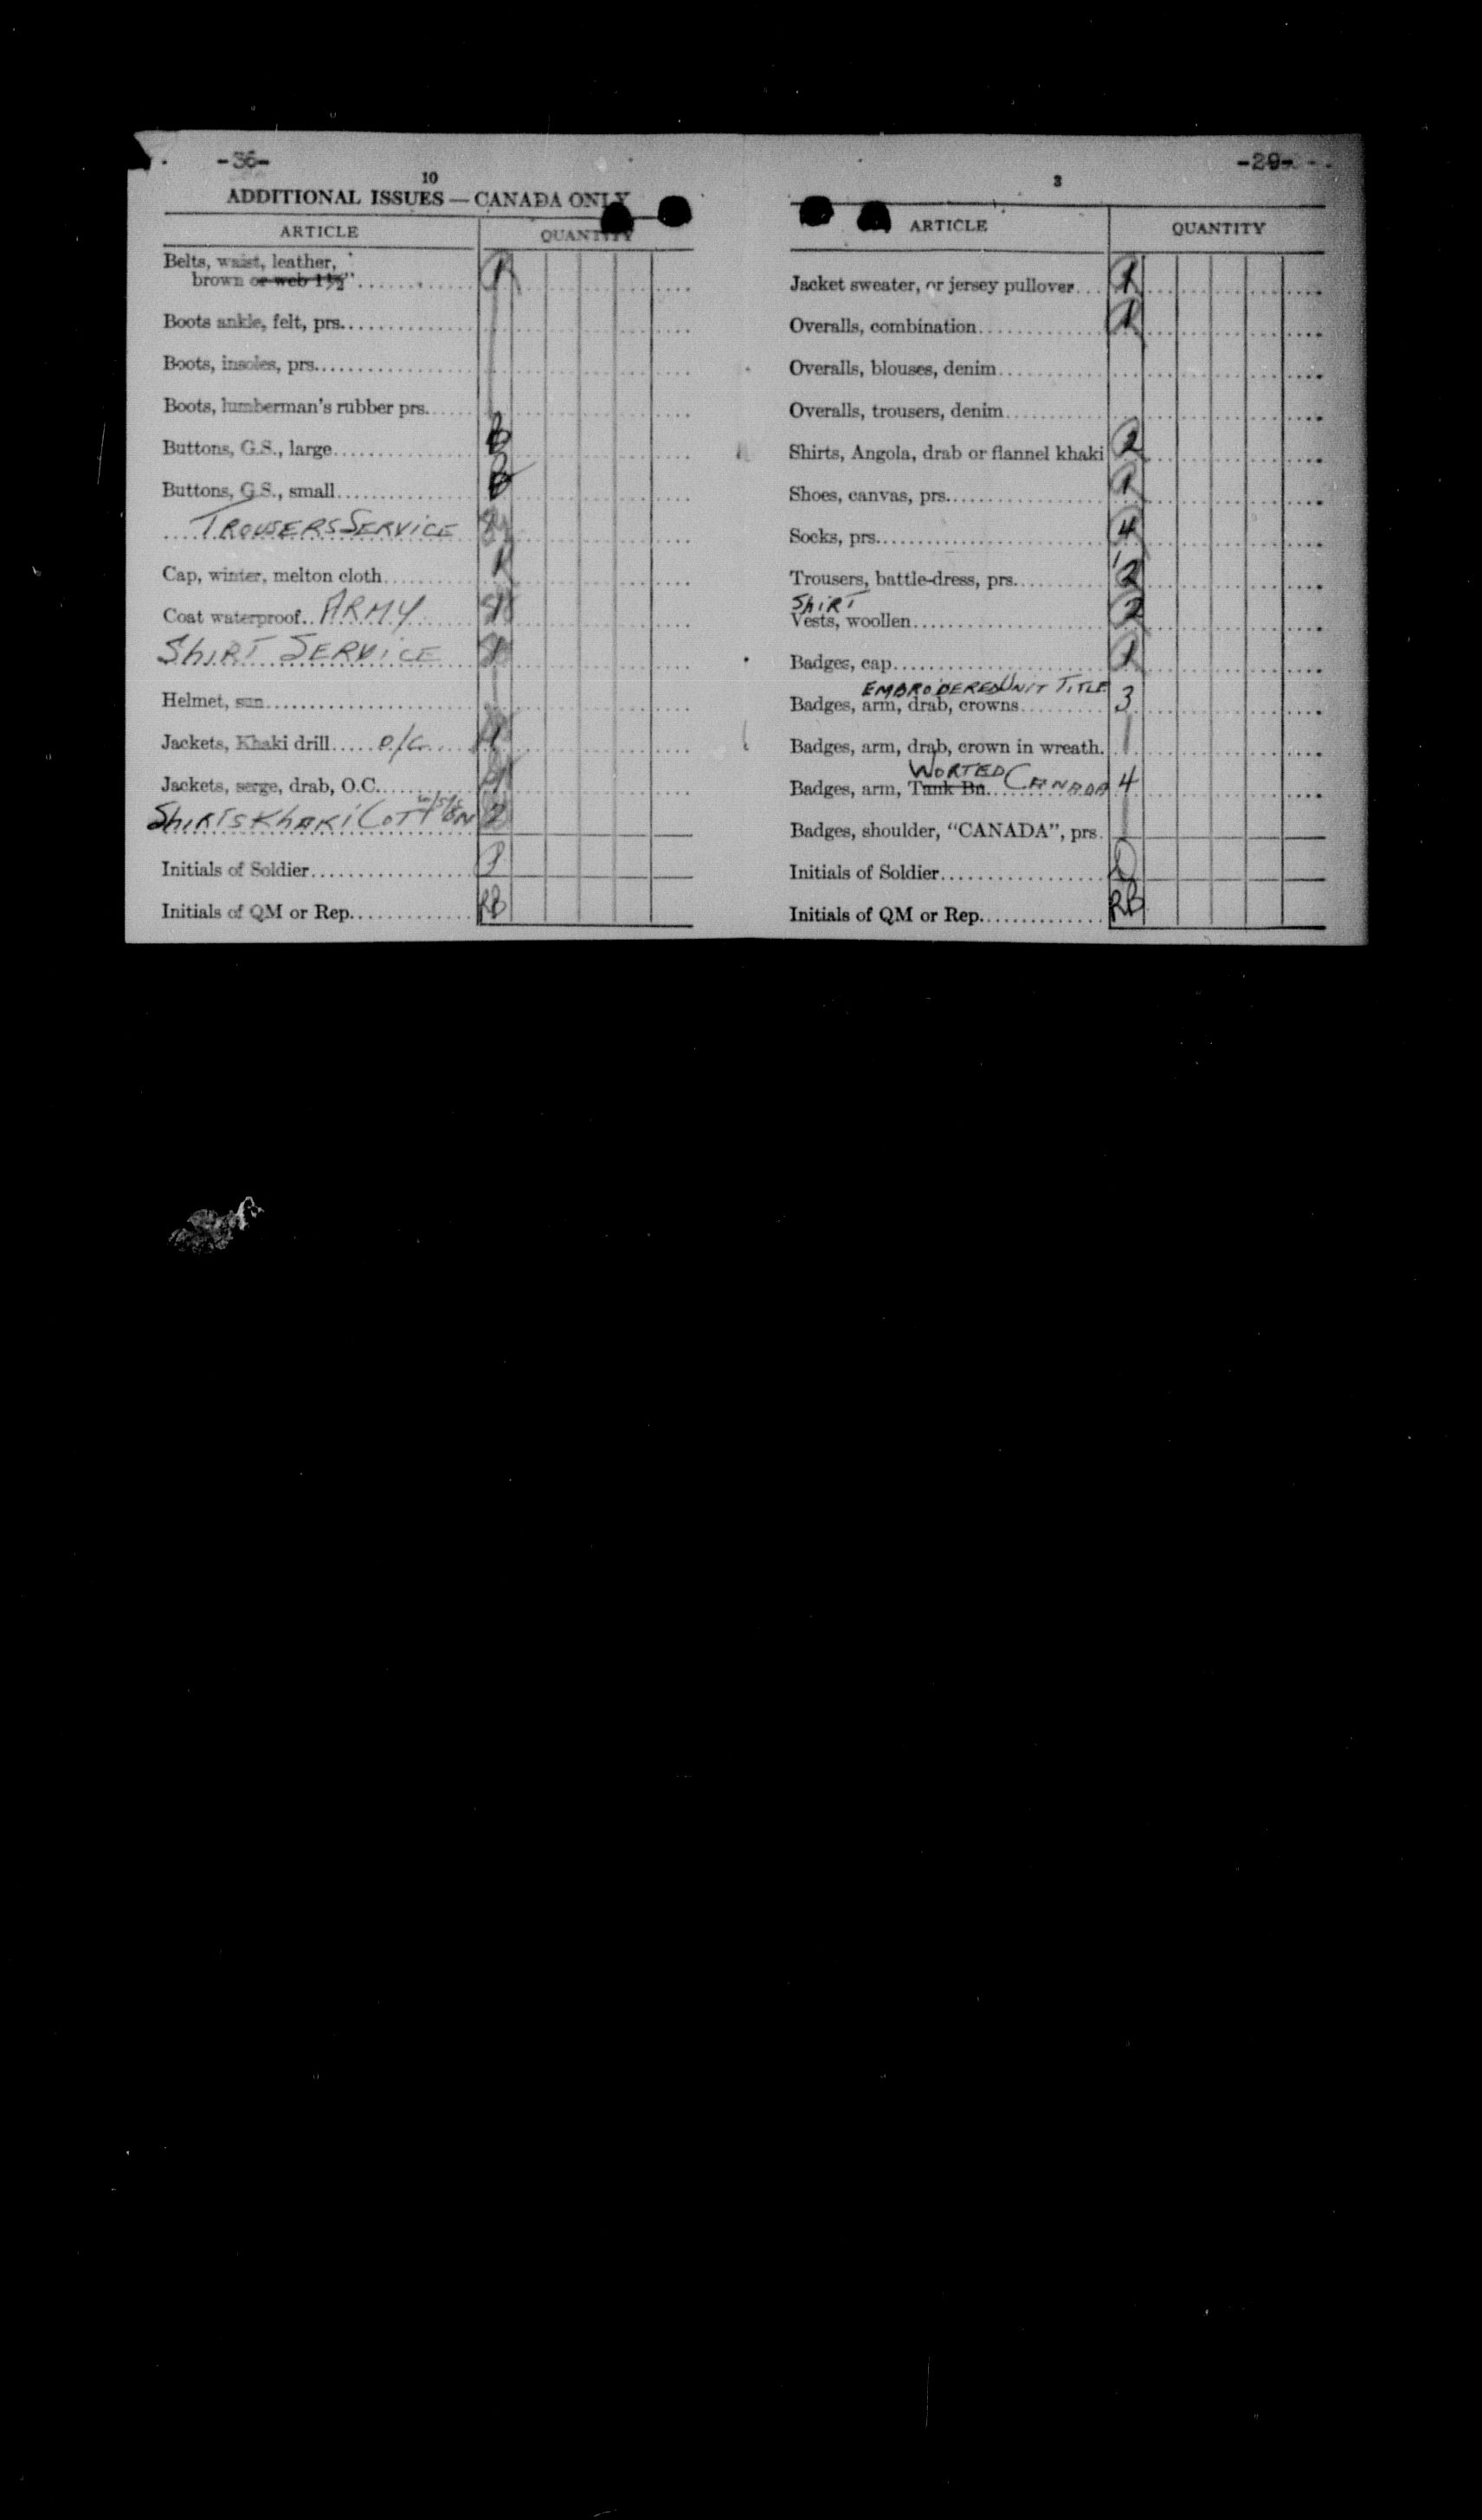 -36-
10
ADDITIONAL ISSUES — CANADA ONLY
ARTICLE QUANTITY
Belts, waist, leather,
brown or web 1½"
Boots ankle, felt, prs.
Boots, insoles, prs.
Boots, lumberman's rubber prs.
Buttons, G.S., large
Buttons, G.S., small
TROUSERS SERVICE
Cap, winter, melton cloth
Coat waterproof ARMY
SHIRT SERVICE
Helmet, sun
Jackets, Khaki drill
Jackets, serge, drab, O.C.
SHIRTS KHAKI COTTON 2
Initials of Soldier
Initials of QM or Rep. RB
-29-
3
ARTICLE QUANTITY
Jacket sweater, or jersey pullover 1
Overalls, combination 1
Overalls, blouses, denim
Overalls, trousers, denim
Shirts, Angola, drab or flannel khaki 2
Shoes, canvas, prs. 1
Socks, prs. 4
Trousers, battle-dress, prs. 2
SHIRT
Vests, woollen 2
Badges, cap 1
EMBRODERED UNIT TITLE
Badges, arm, drab, crowns 3
Badges, arm, drab, crown in wreath.
WORTED
Badges, arm, Tank Bn. CANADA 4
Badges, shoulder, "CANADA", prs.
Initials of Soldier
Initials of QM or Rep. RB